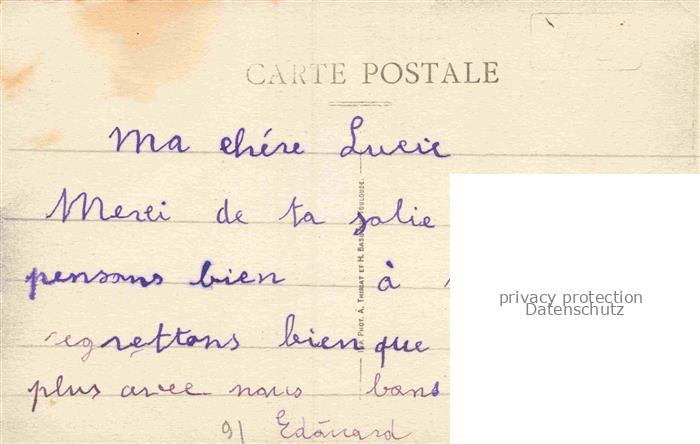 CARTE POSTALE
Ma chére Lucie
Merci de ta jolie
pensons bien à
regrettons bien que
plus avec nous bons
91 Edouard
PHOT. A. THIRIAT ET H. BASUYAU TOULOUSE.
privacy protection
Datenschutz